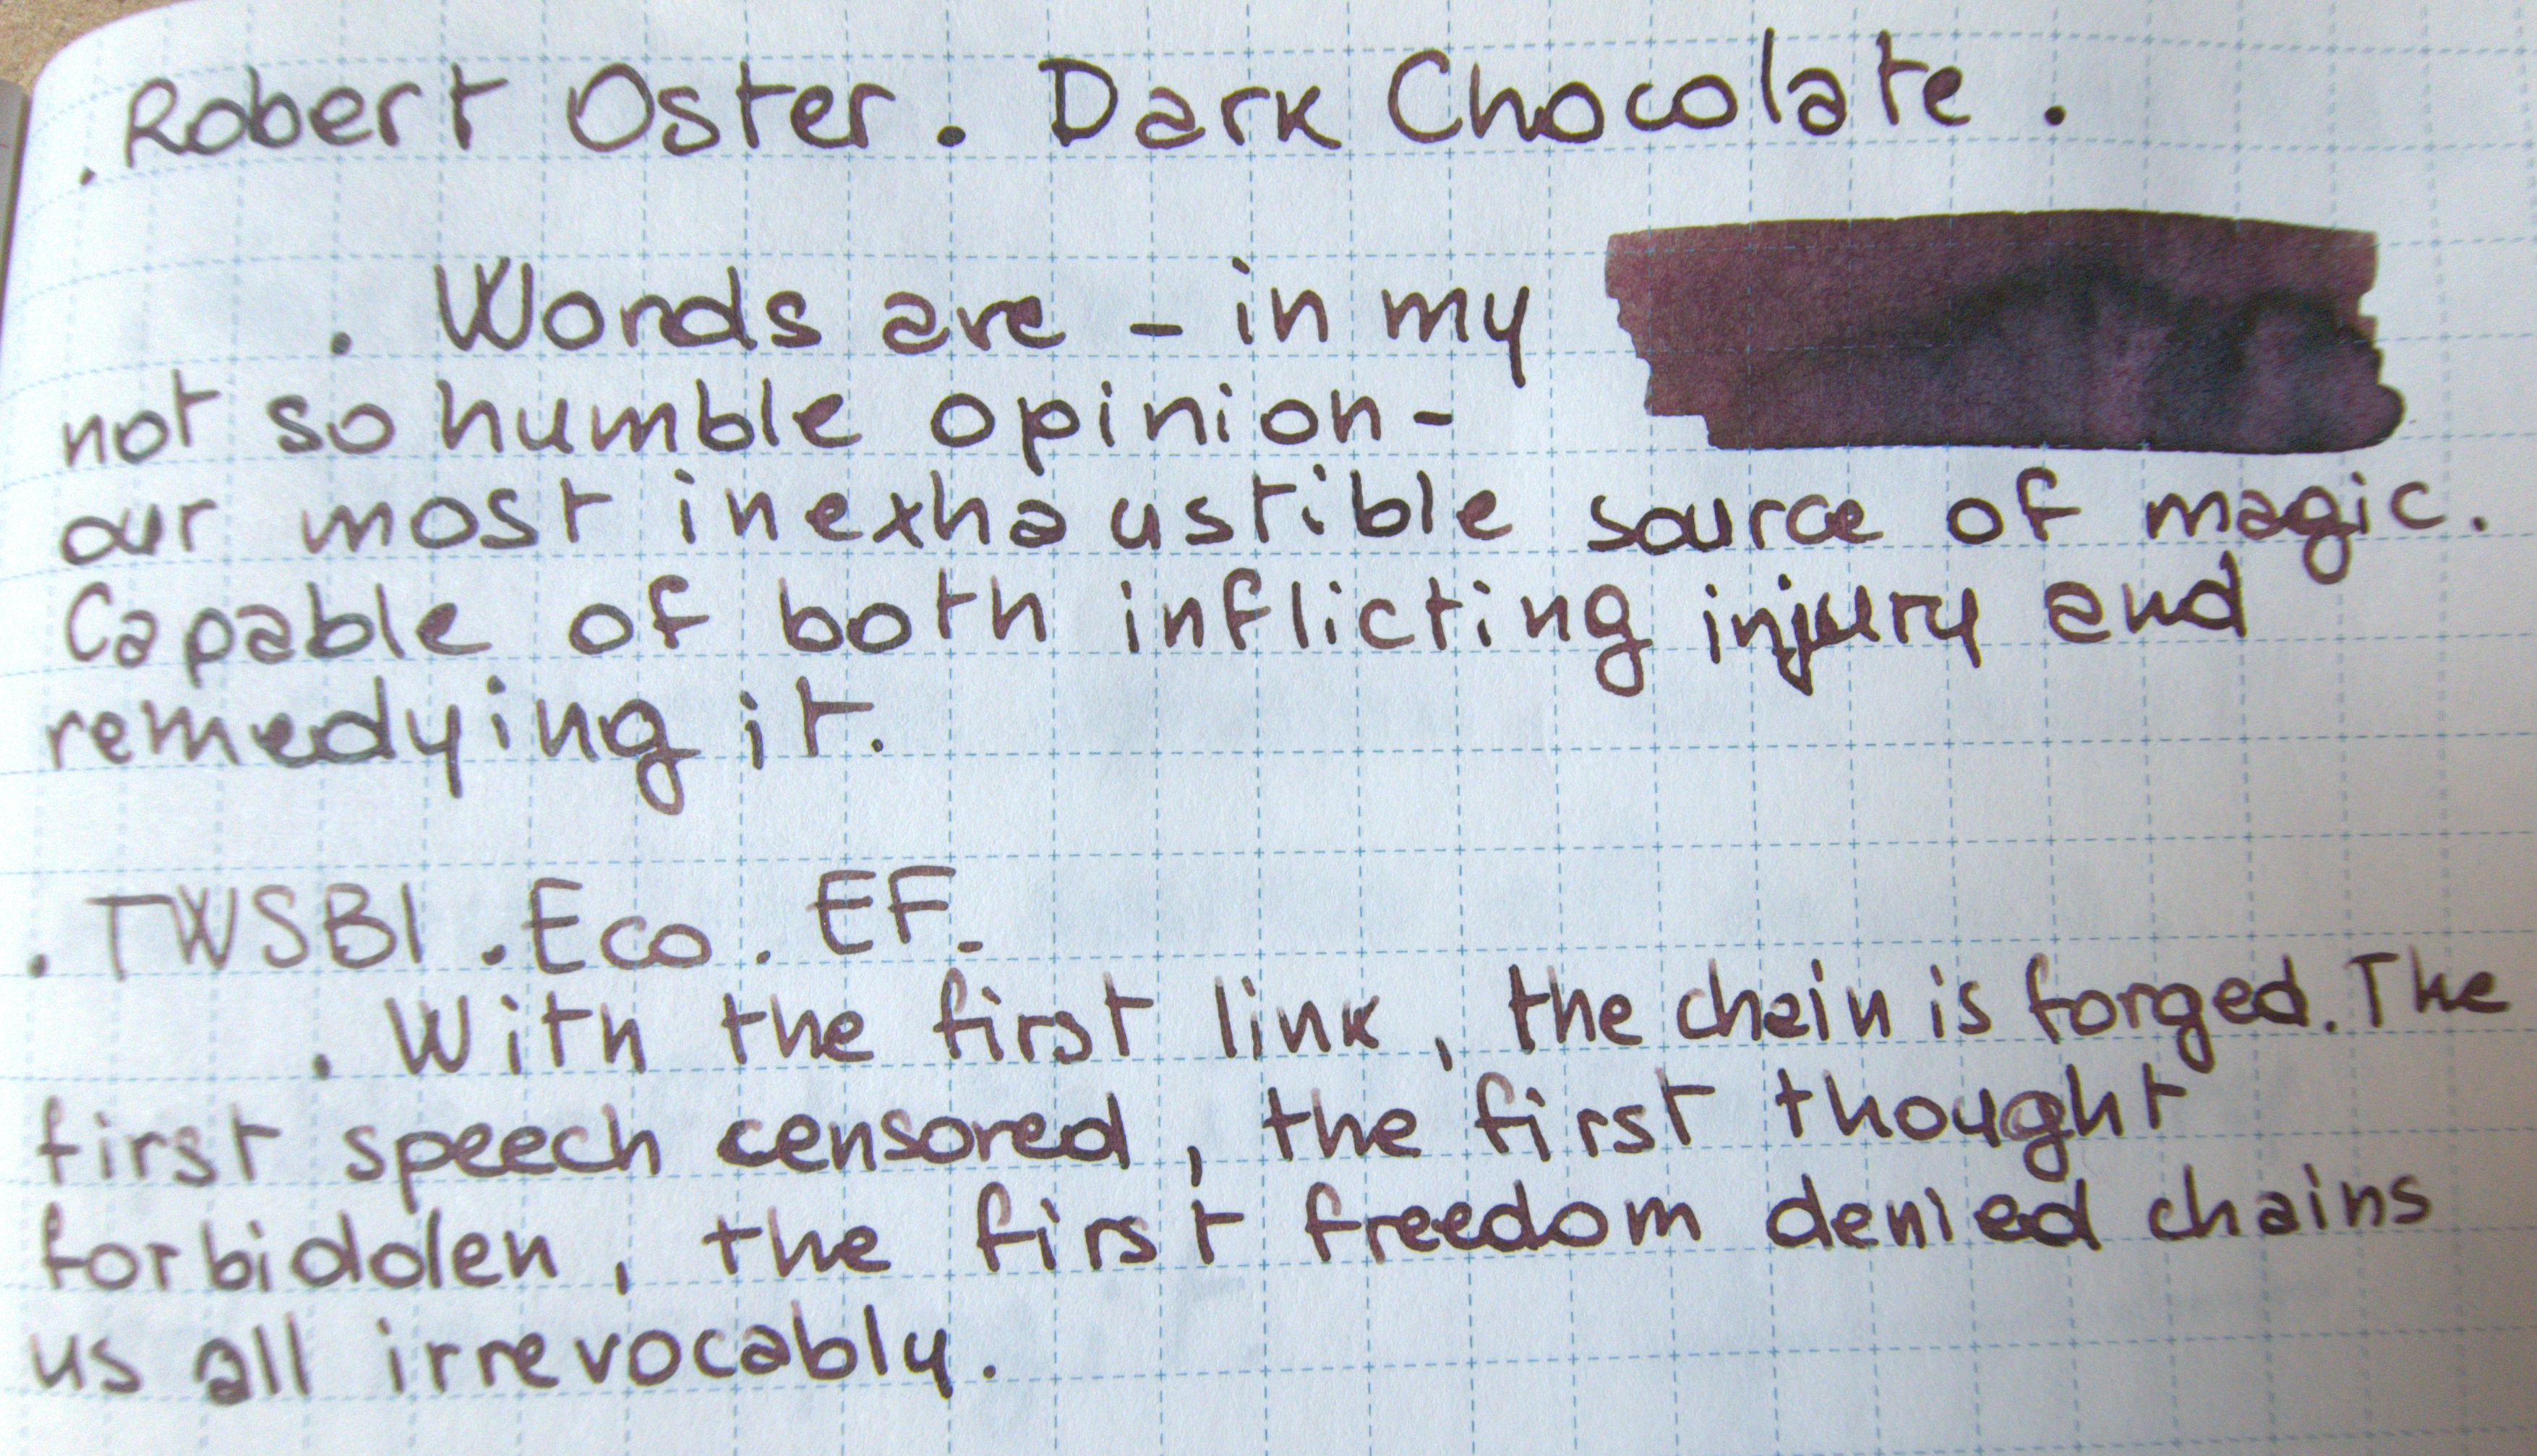 . Robert Oster. Dark Chocolate .
. Words are - in my
not so humble opinion -
our most inexhaustible source of magic.
Capable of both inflicting injury and
remedying it.
. TWSBI . Eco . EF.
. With the first link, the chain is forged. The
first speech censored, the first thought
forbidden, the first freedom denied chains
us all irrevocably.